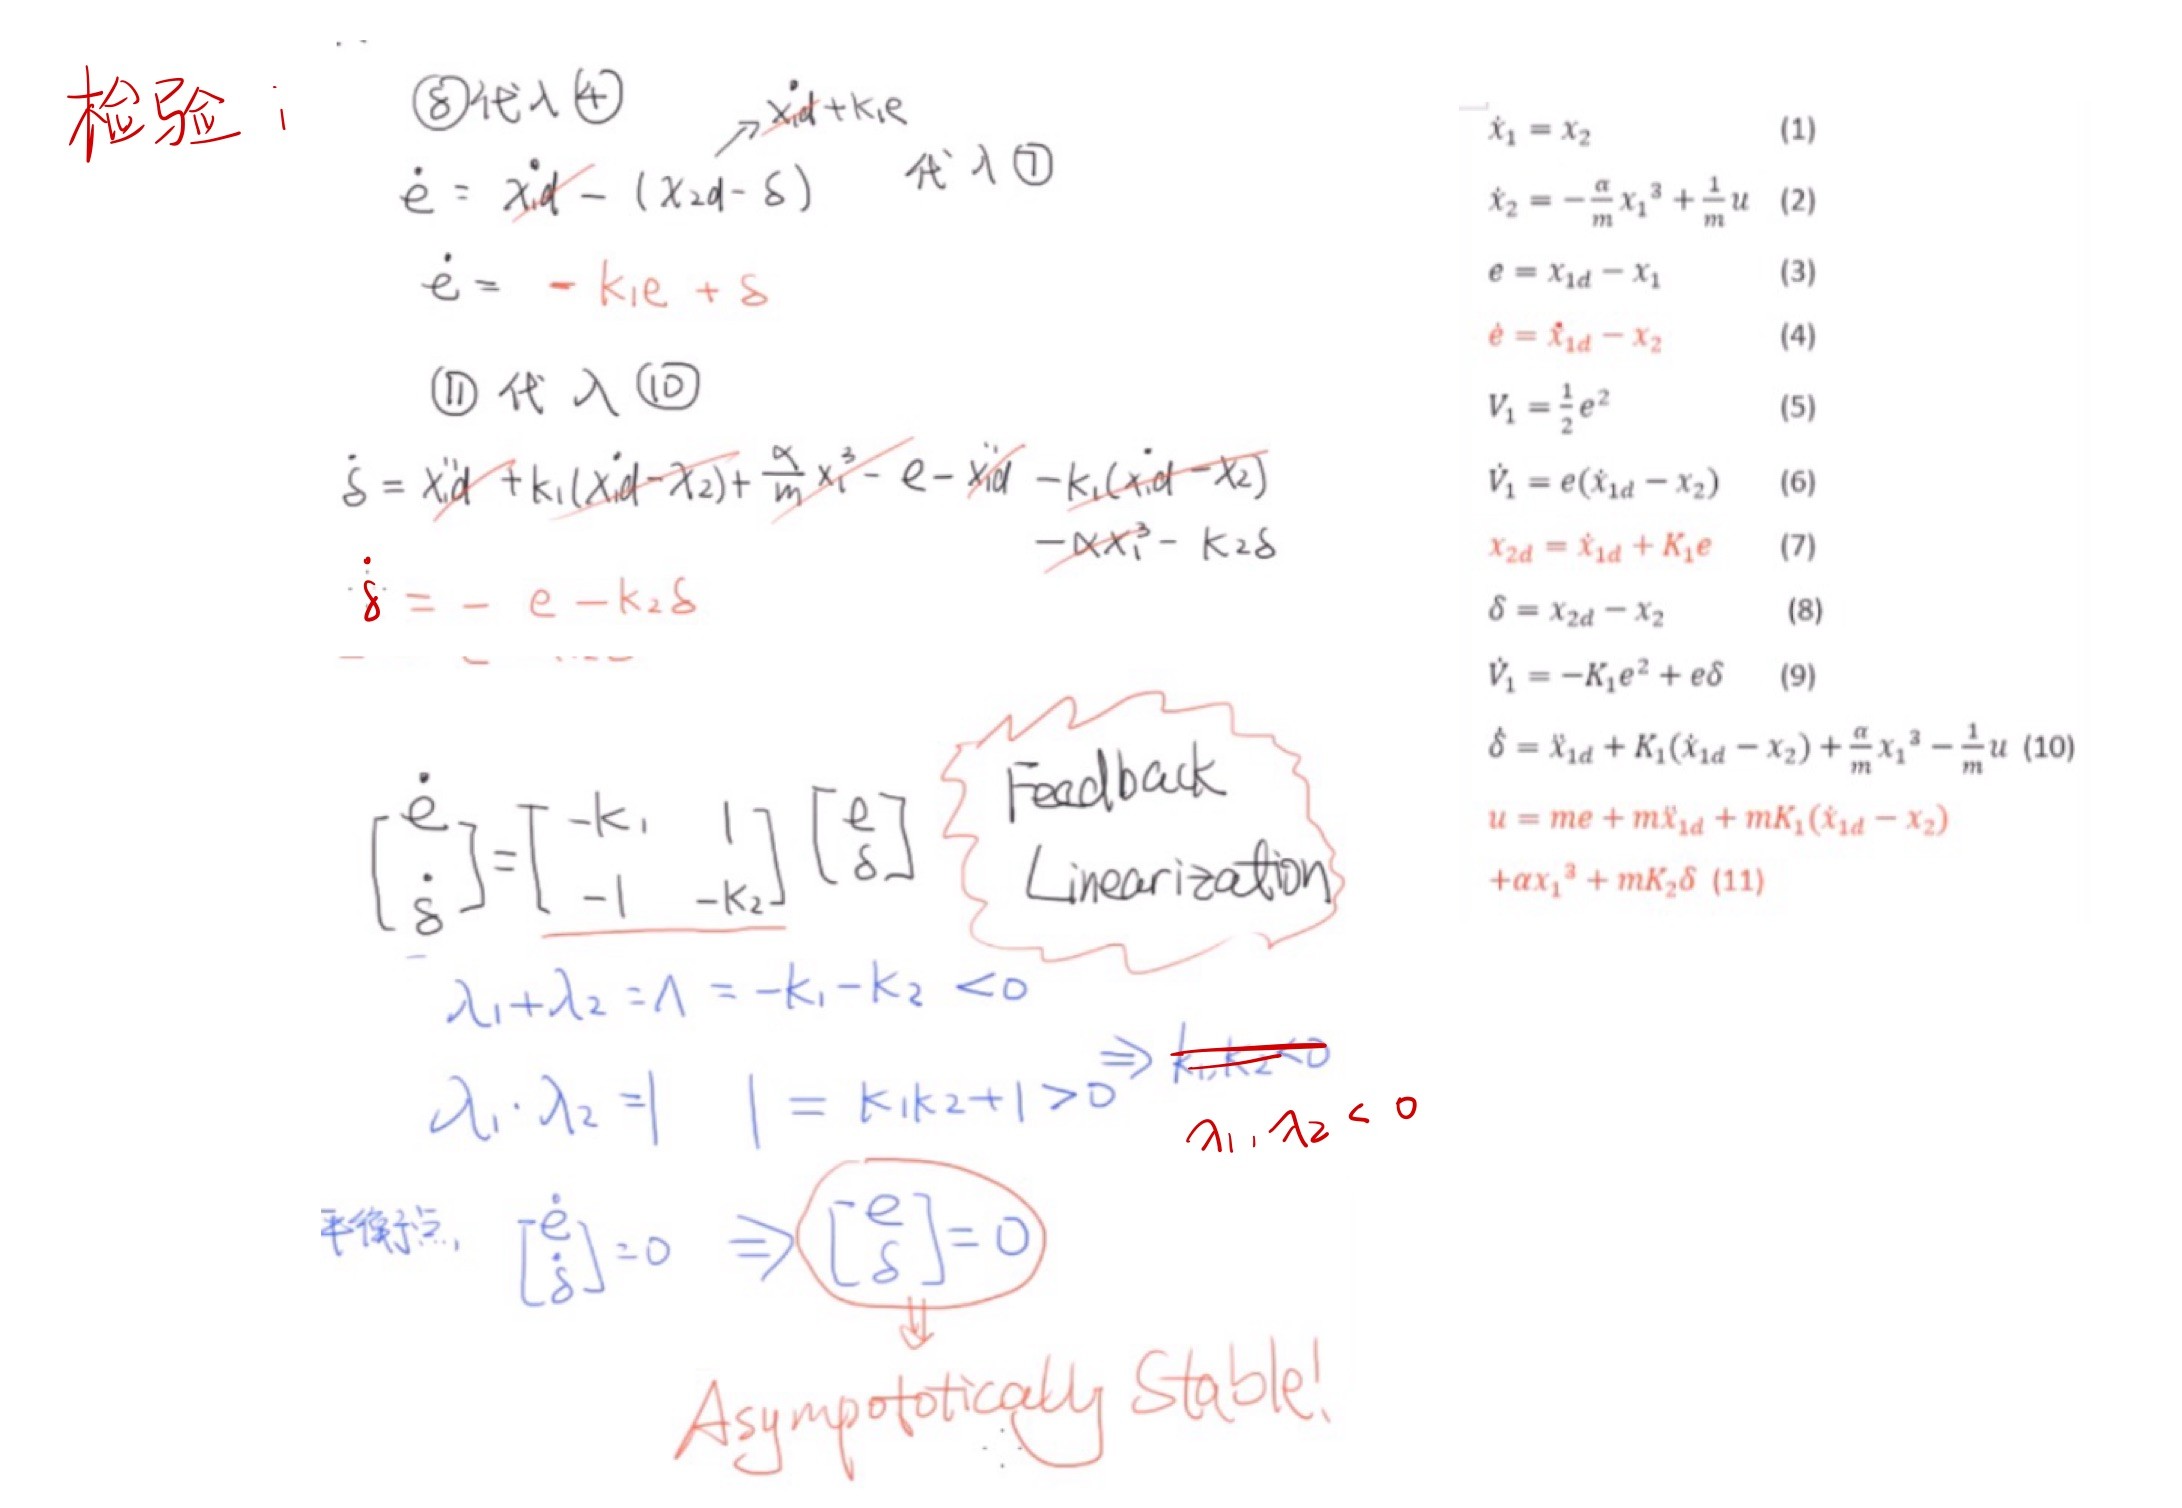 检验：
⑧代入④
ẋ1d+k1e
ė = ẋ1d - (x2d - δ) 代入⑦
ė = - k1e + δ
⑪代入⑩
δ̇ = ẍ1d + k1(ẋ1d - x2) + α/m x1³ - e - ẍ1d - k1(ẋ1d - x2)
- αx1³ - k2δ
δ̇ = - e - k2δ
[ė δ̇] = [-k1 1 -1 -k2] [e δ]
Feedback
Linearization
λ1+λ2 = Λ = -k1-k2 <0
λ1·λ2 = | | = k1k2+1 >0 ⇒ k1,k2<0
λ1,λ2 < 0
平衡点, [ė δ̇]=0 ⇒ [e δ]=0
Asympototically Stable!
ẋ₁ = x₂ (1)
ẋ₂ = -α/m x₁³ + 1/m u (2)
e = x1d - x₁ (3)
ė = ẋ1d - x₂ (4)
V₁ = 1/2 e² (5)
V̇₁ = e(ẋ1d - x₂) (6)
x2d = ẋ1d + K₁e (7)
δ = x2d - x₂ (8)
V̇₁ = -K₁e² + eδ (9)
δ̇ = ẍ1d + K₁(ẋ1d - x₂) + α/m x₁³ - 1/m u (10)
u = me + mẍ1d + mK₁(ẋ1d - x₂)
+αx₁³ + mK₂δ (11)